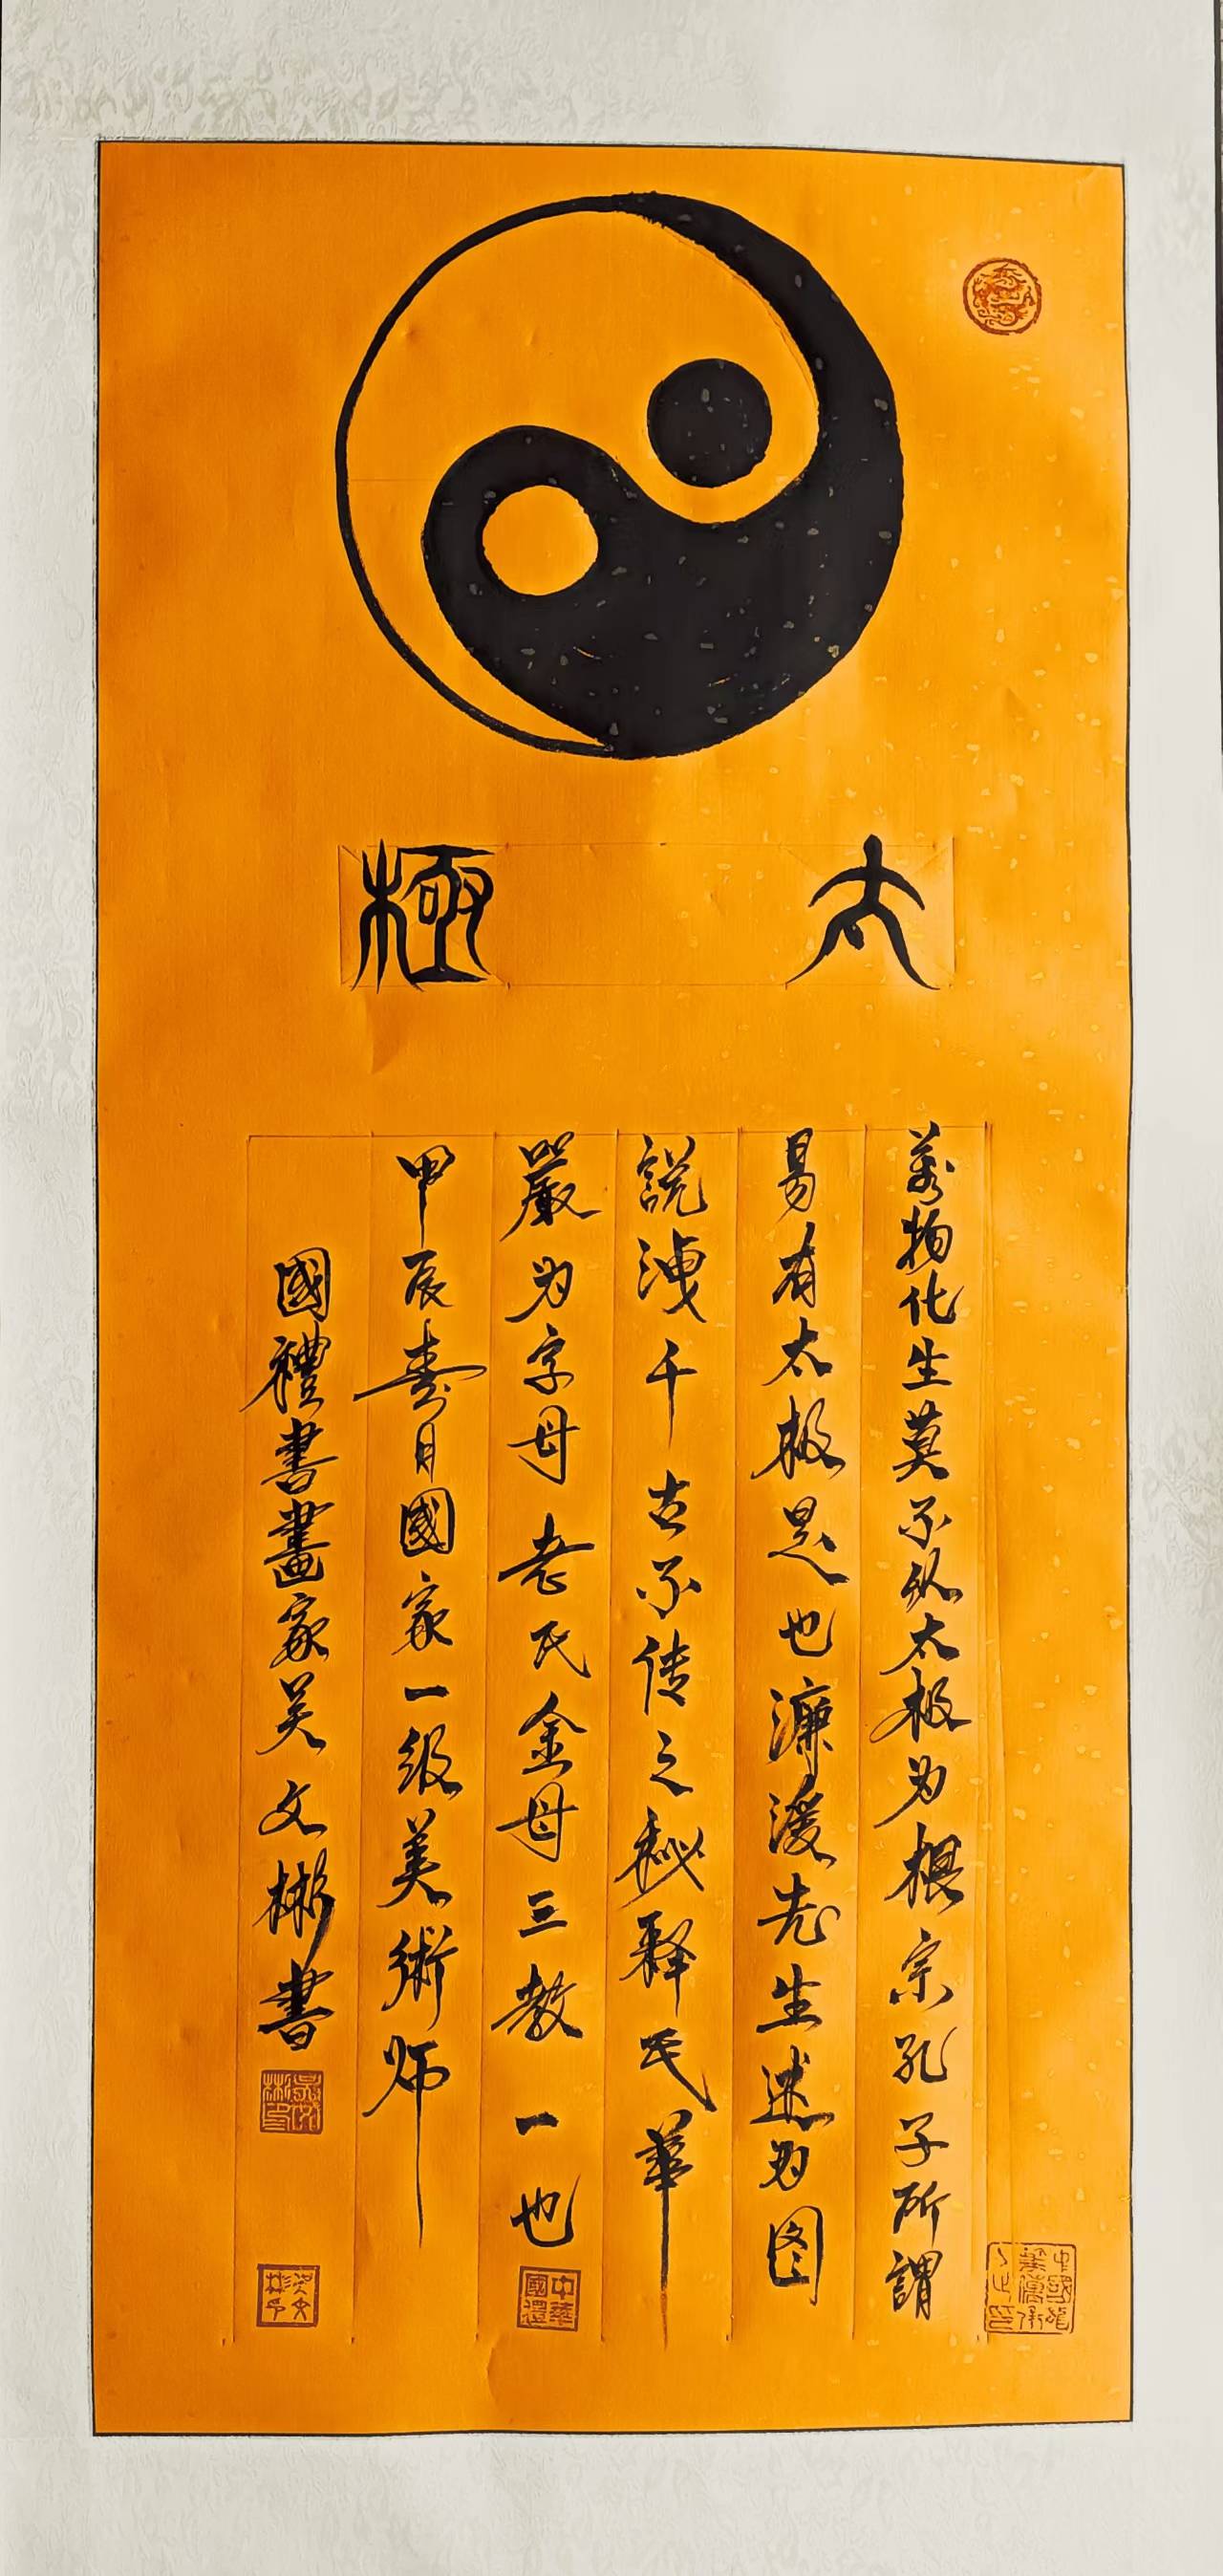 太極
萬物化生莫不以太极为根宗孔子所謂
易有太极是也濂溪先生述为图
説洩千古不传之秘释氏華
嚴为字母老氏金母三教一也
甲辰春月國家一级美術师
國禮書畫家吴文彬書
中華國禮